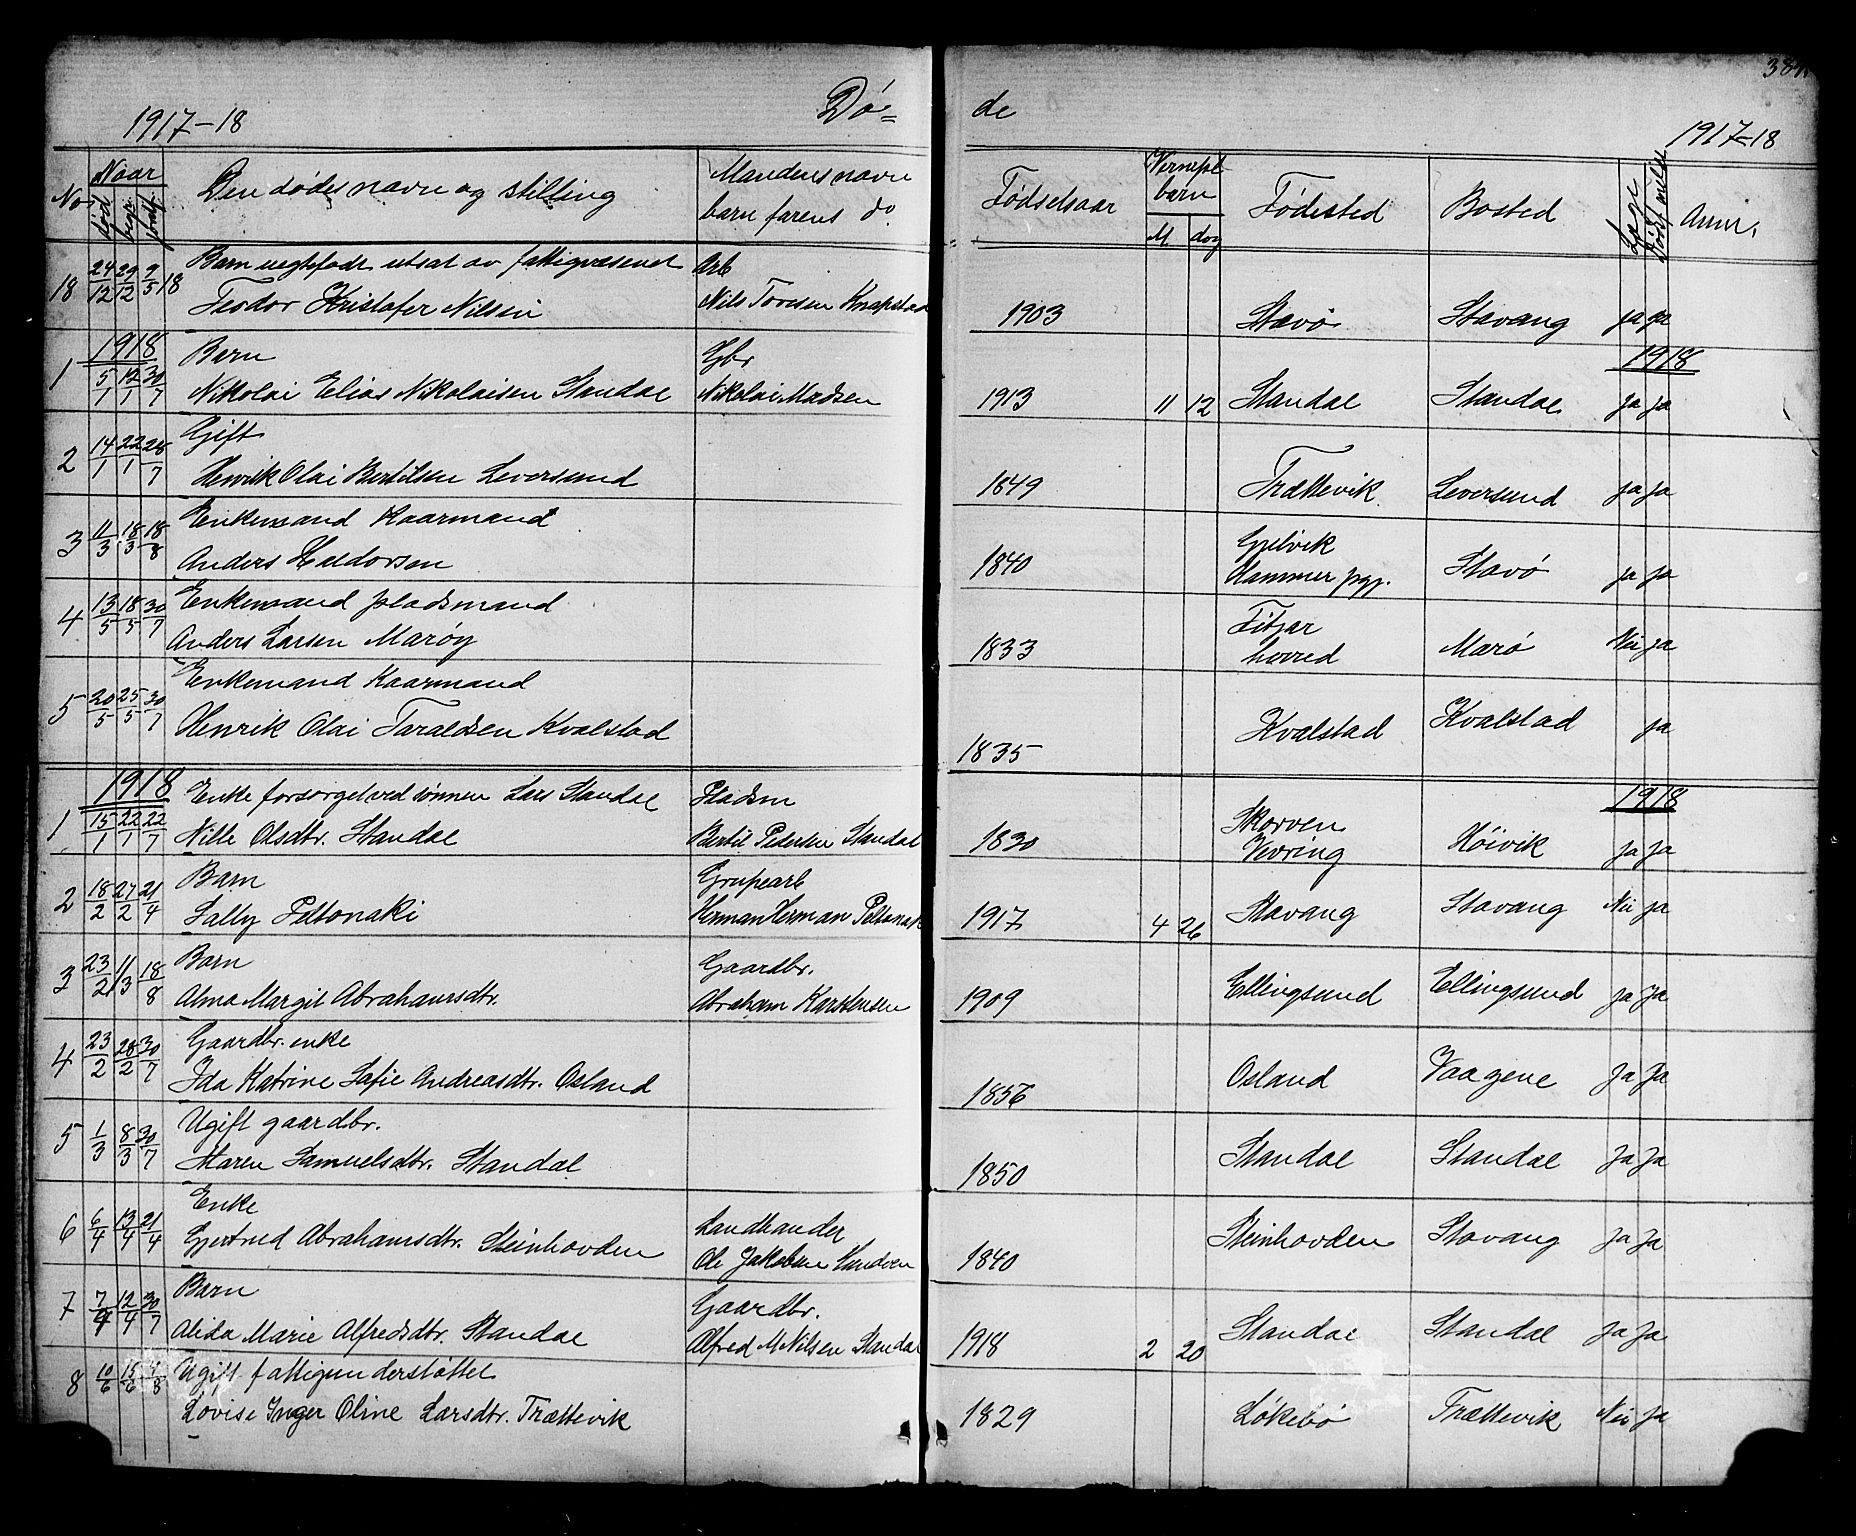 1917-18
Dö=
de
1917-18
No
Naar
død
begr.
Den dødes navn og stilling
Mandens navn
barn farens do
Fødselsaar
barn
M
dag
Fødested
Bosted
Læge
Dødsf. meld.
Anm.
18 24/12 29/12 9/5 18 Barn uegtefødt utsat av fattigvæsenet Arb
Teodor Kristofer Nilsen Nils Toresen Knapstad 1903 Stavø Stavang ja ja
1918 1918
1 5/1 12/1 30/7 Barn Gbr
Nikolai Elias Nikolaisen Standal Nikolai Madsen 1913 11 12 Standal Standal ja ja
2 14/1 22/1 28/7 Gift
Henrik Olai Bertilsen Leversund 1849 Trættevik Leversund ja ja
3 11/3 18/3 18/8 Enkemand Kaarmand
Anders Heldorsen 1840
Hammer pgj. Stavø ja ja
4 13/5 18/5 30/7 Enkemand pladsmand
Anders Larsen Marøy 1833 Fitjar
herred Marø Nei ja
5 20/5 25/5 30/7 Enkemand Kaarmand
Henrik Olai Taraldsen Kvalstad 1835 Kvalstad Kvalstad ja
1918 1918
1 15/1 22/1 22/7 Enke forsørget ved sønnen Lars Standal Pladsm
Nille Olsdtr. Standal Bertil Pedersen Standal 1830 Skorven
Vevring Høivik ja ja
2 18/2 27/2 21/4 Barn Grupearb
Sally Peltonaki Herman Herman Peltonak 1917 4 26 Stavang Stavang Nei ja
3 23/2 11/3 18/8 Barn Gaardbr.
Alma Margit Abrahamsdtr. Abraham Karstensen 1909 Ellingsund Ellingsund ja ja
4 23/2 28/2 30/7 Gaardbr. enke
Ida Katrine Sofie Andreasdtr. Osland 1856 Osland Vaagene ja ja
5 1/3 8/3 30/7 Ugift gaardbr.
Maren Samuelsdtr. Standal 1850 Standal Standal ja ja
6 6/4 13/4 21/4 Enke Landhandler
Gjertrud Abrahamsdtr. Steinhovden Ole Jakobsen Sandven 1840 Steinhovden Stavang ja ja
7 7/4 12/4 30/7 Barn Gaardbr.
Alida Marie Alfredsdtr. Standal Alfred M Nilsen Standal 1918 2 20 Standal Standal ja ja
8 10/6 15/6 Ugift fattigunderstøttet
Lovise Inger Oline Larsdtr. Trættevik 1829 Løkebø Trættevik Nei ja